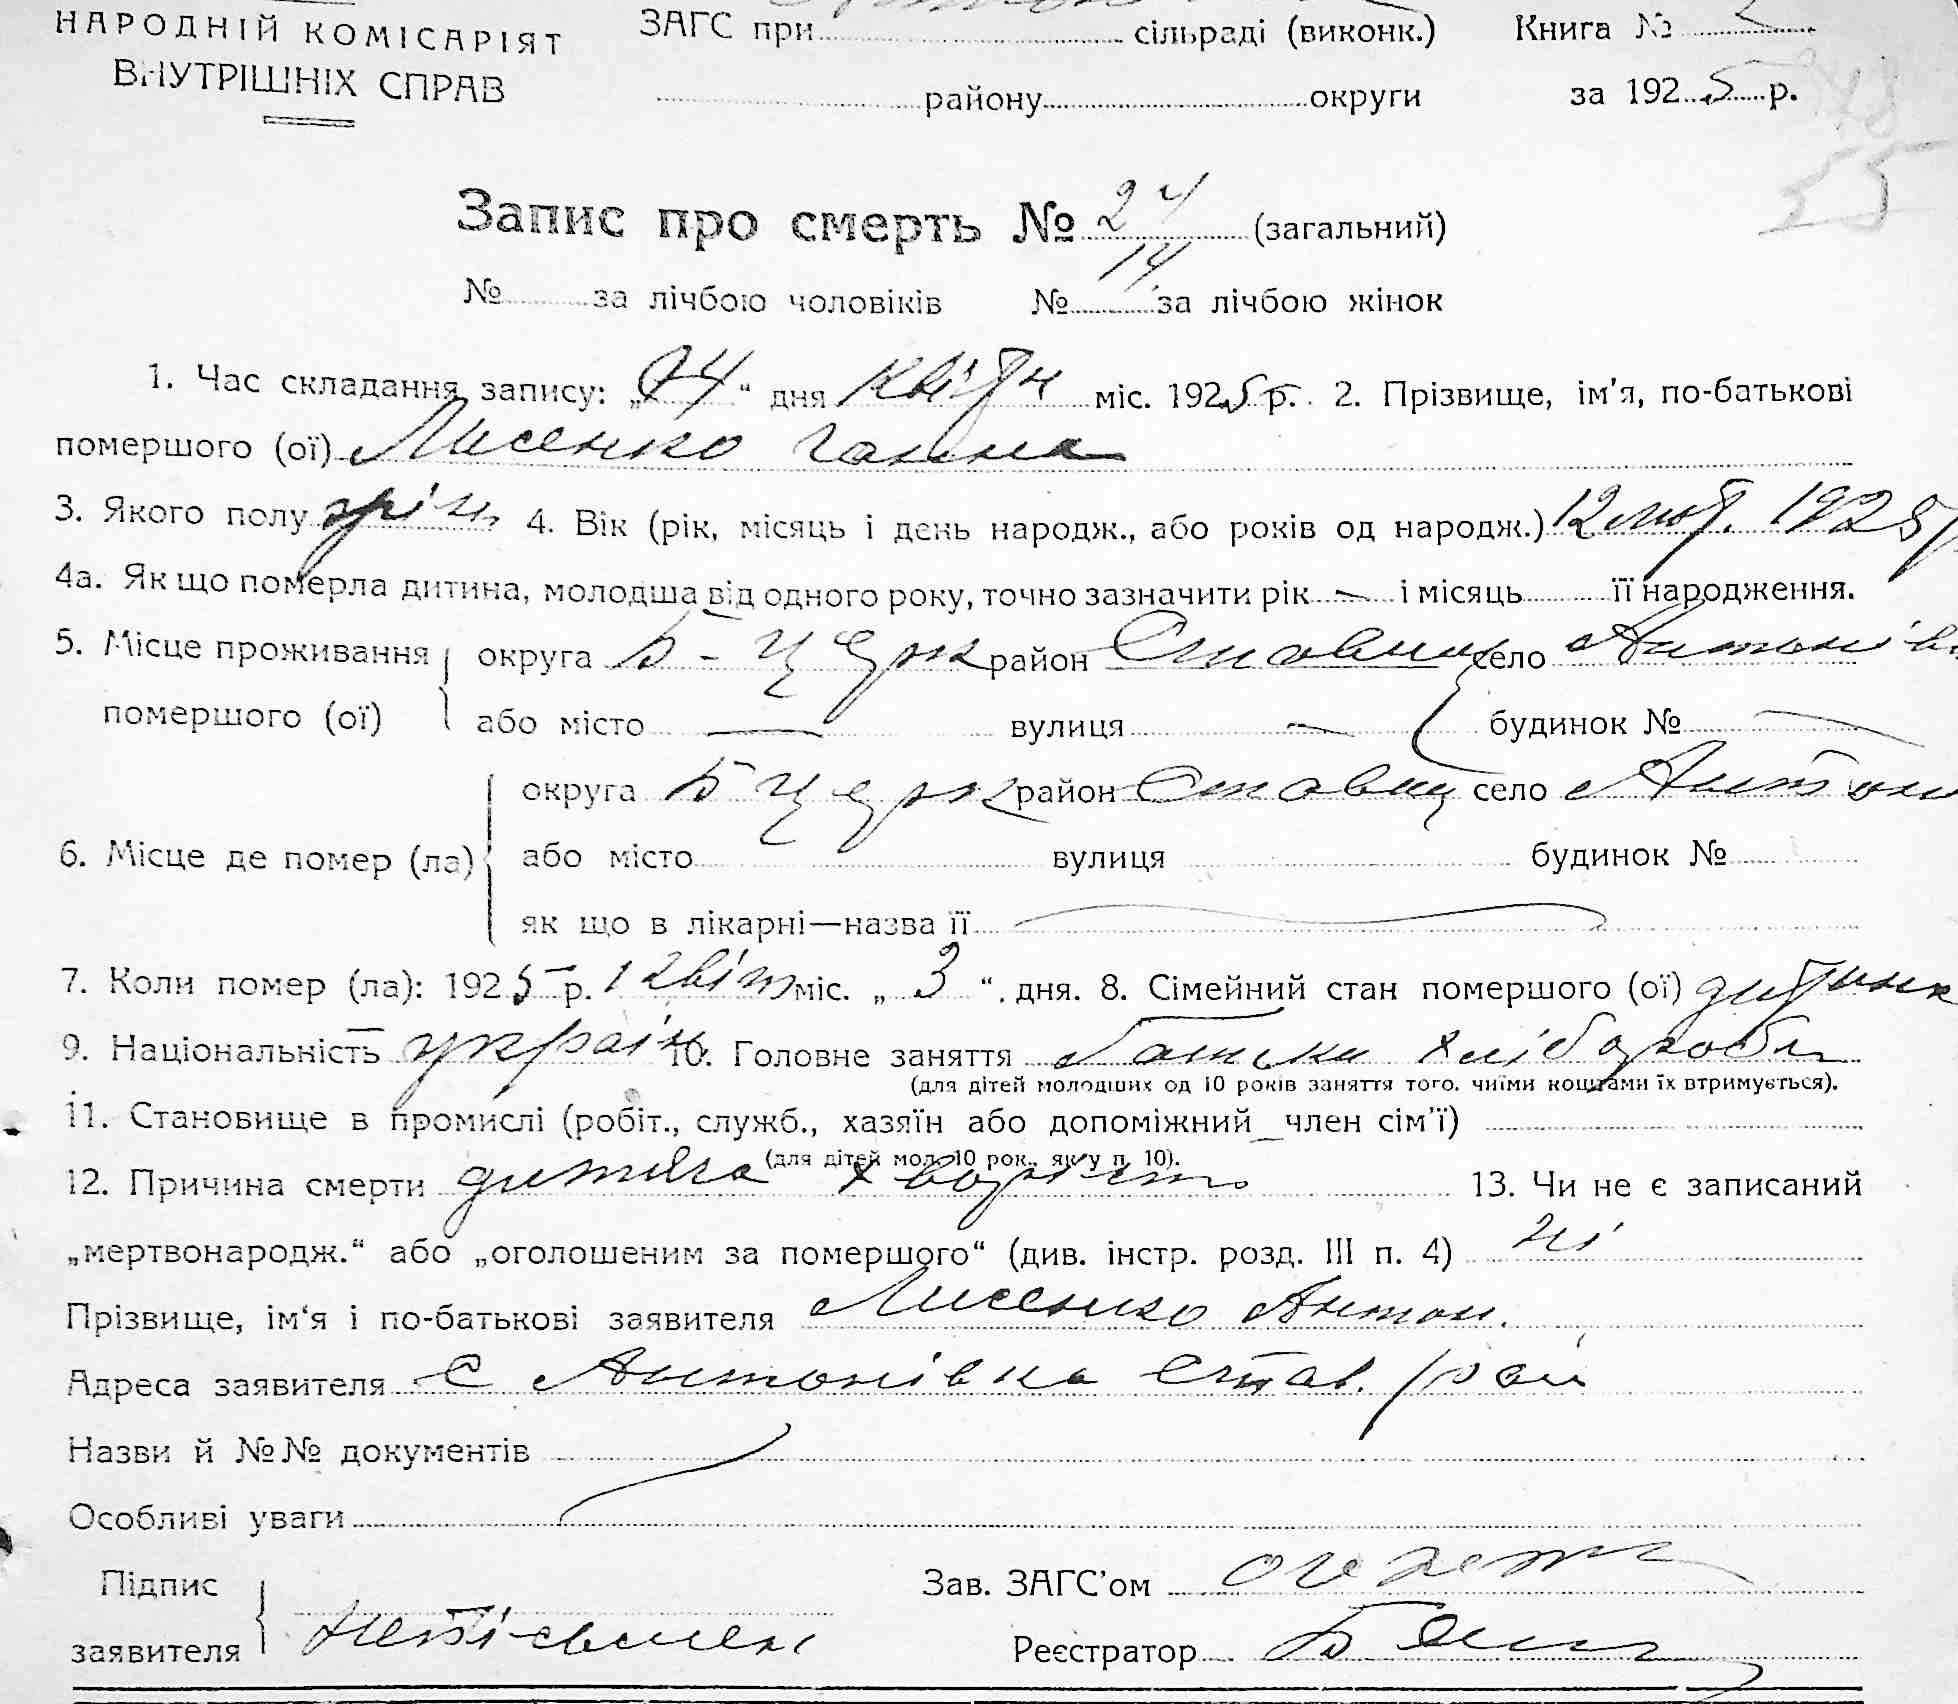 НАРОДНІЙ КОМІСАРІЯТ
ВНУТРІШНІХ СПРАВ
ЗАГС при сільраді (виконк.) Книга № 2
району округи за 1925 р.
55
Запис про смерть № 24 (загальний)
№ за лічбою чоловіків № 14 за лічбою жінок
1. Час складання запису: „ 4 “ дня квітн міс. 1925 р. 2. Прізвище, ім'я, по-батькові
помершого (ої) Лисенко Ганна
3. Якого полу жін 4. Вік (рік, місяць і день народж., або років од народж.) 12 лют. 1925 р
4а. Як що померла дитина, молодша від одного року, точно зазначити рік — і місяць її народження.
5. Місце проживання помершого (ої) округа Б-Церк район Ставищ село Антонівк
або місто — вулиця — будинок № —
6. Місце де помер (ла) округа Б Церк район Ставищ село Антон
або місто вулиця будинок №
як що в лікарні—назва її
7. Коли помер (ла): 1925 р. квіт міс. „ 3 “ дня. 8. Сімейний стан помершого (ої) дитина
9. Національність україн 10. Головне заняття батьки хлібороби
(для дітей молодших од 10 років заняття того, чиїми коштами їх втримується).
11. Становище в промислі (робіт., служб., хазяїн або допоміжний член сім'ї)
(для дітей мол. 10 рок., як у п. 10).
12. Причина смерти дитяча хворість 13. Чи не є записаний
„мертвонародж.“ або „оголошеним за помершого“ (див. інстр. розд. III п. 4) ні
Прізвище, ім'я і по-батькові заявителя Лисенко Антон.
Адреса заявителя с Антонівка Став. рай
Назви й №№ документів
Особливі уваги
Підпис заявителя неписьмен
Зав. ЗАГС'ом
Реєстратор